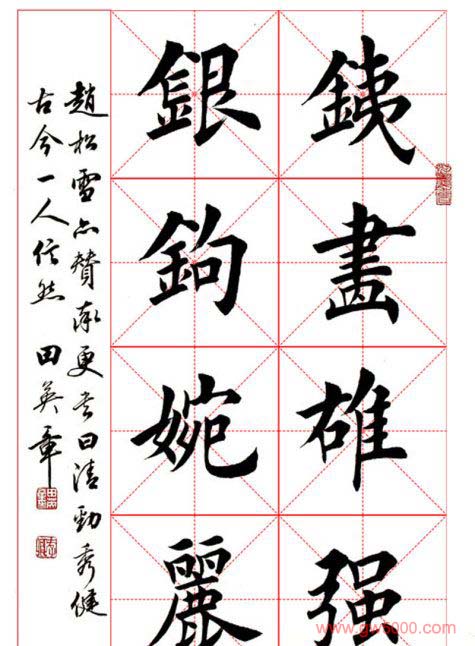 銕畫雄强
銀鉤婉麗
趙松雪亦贊率更書曰清勁秀健
古今一人信然 田英章
www.gw5000.com